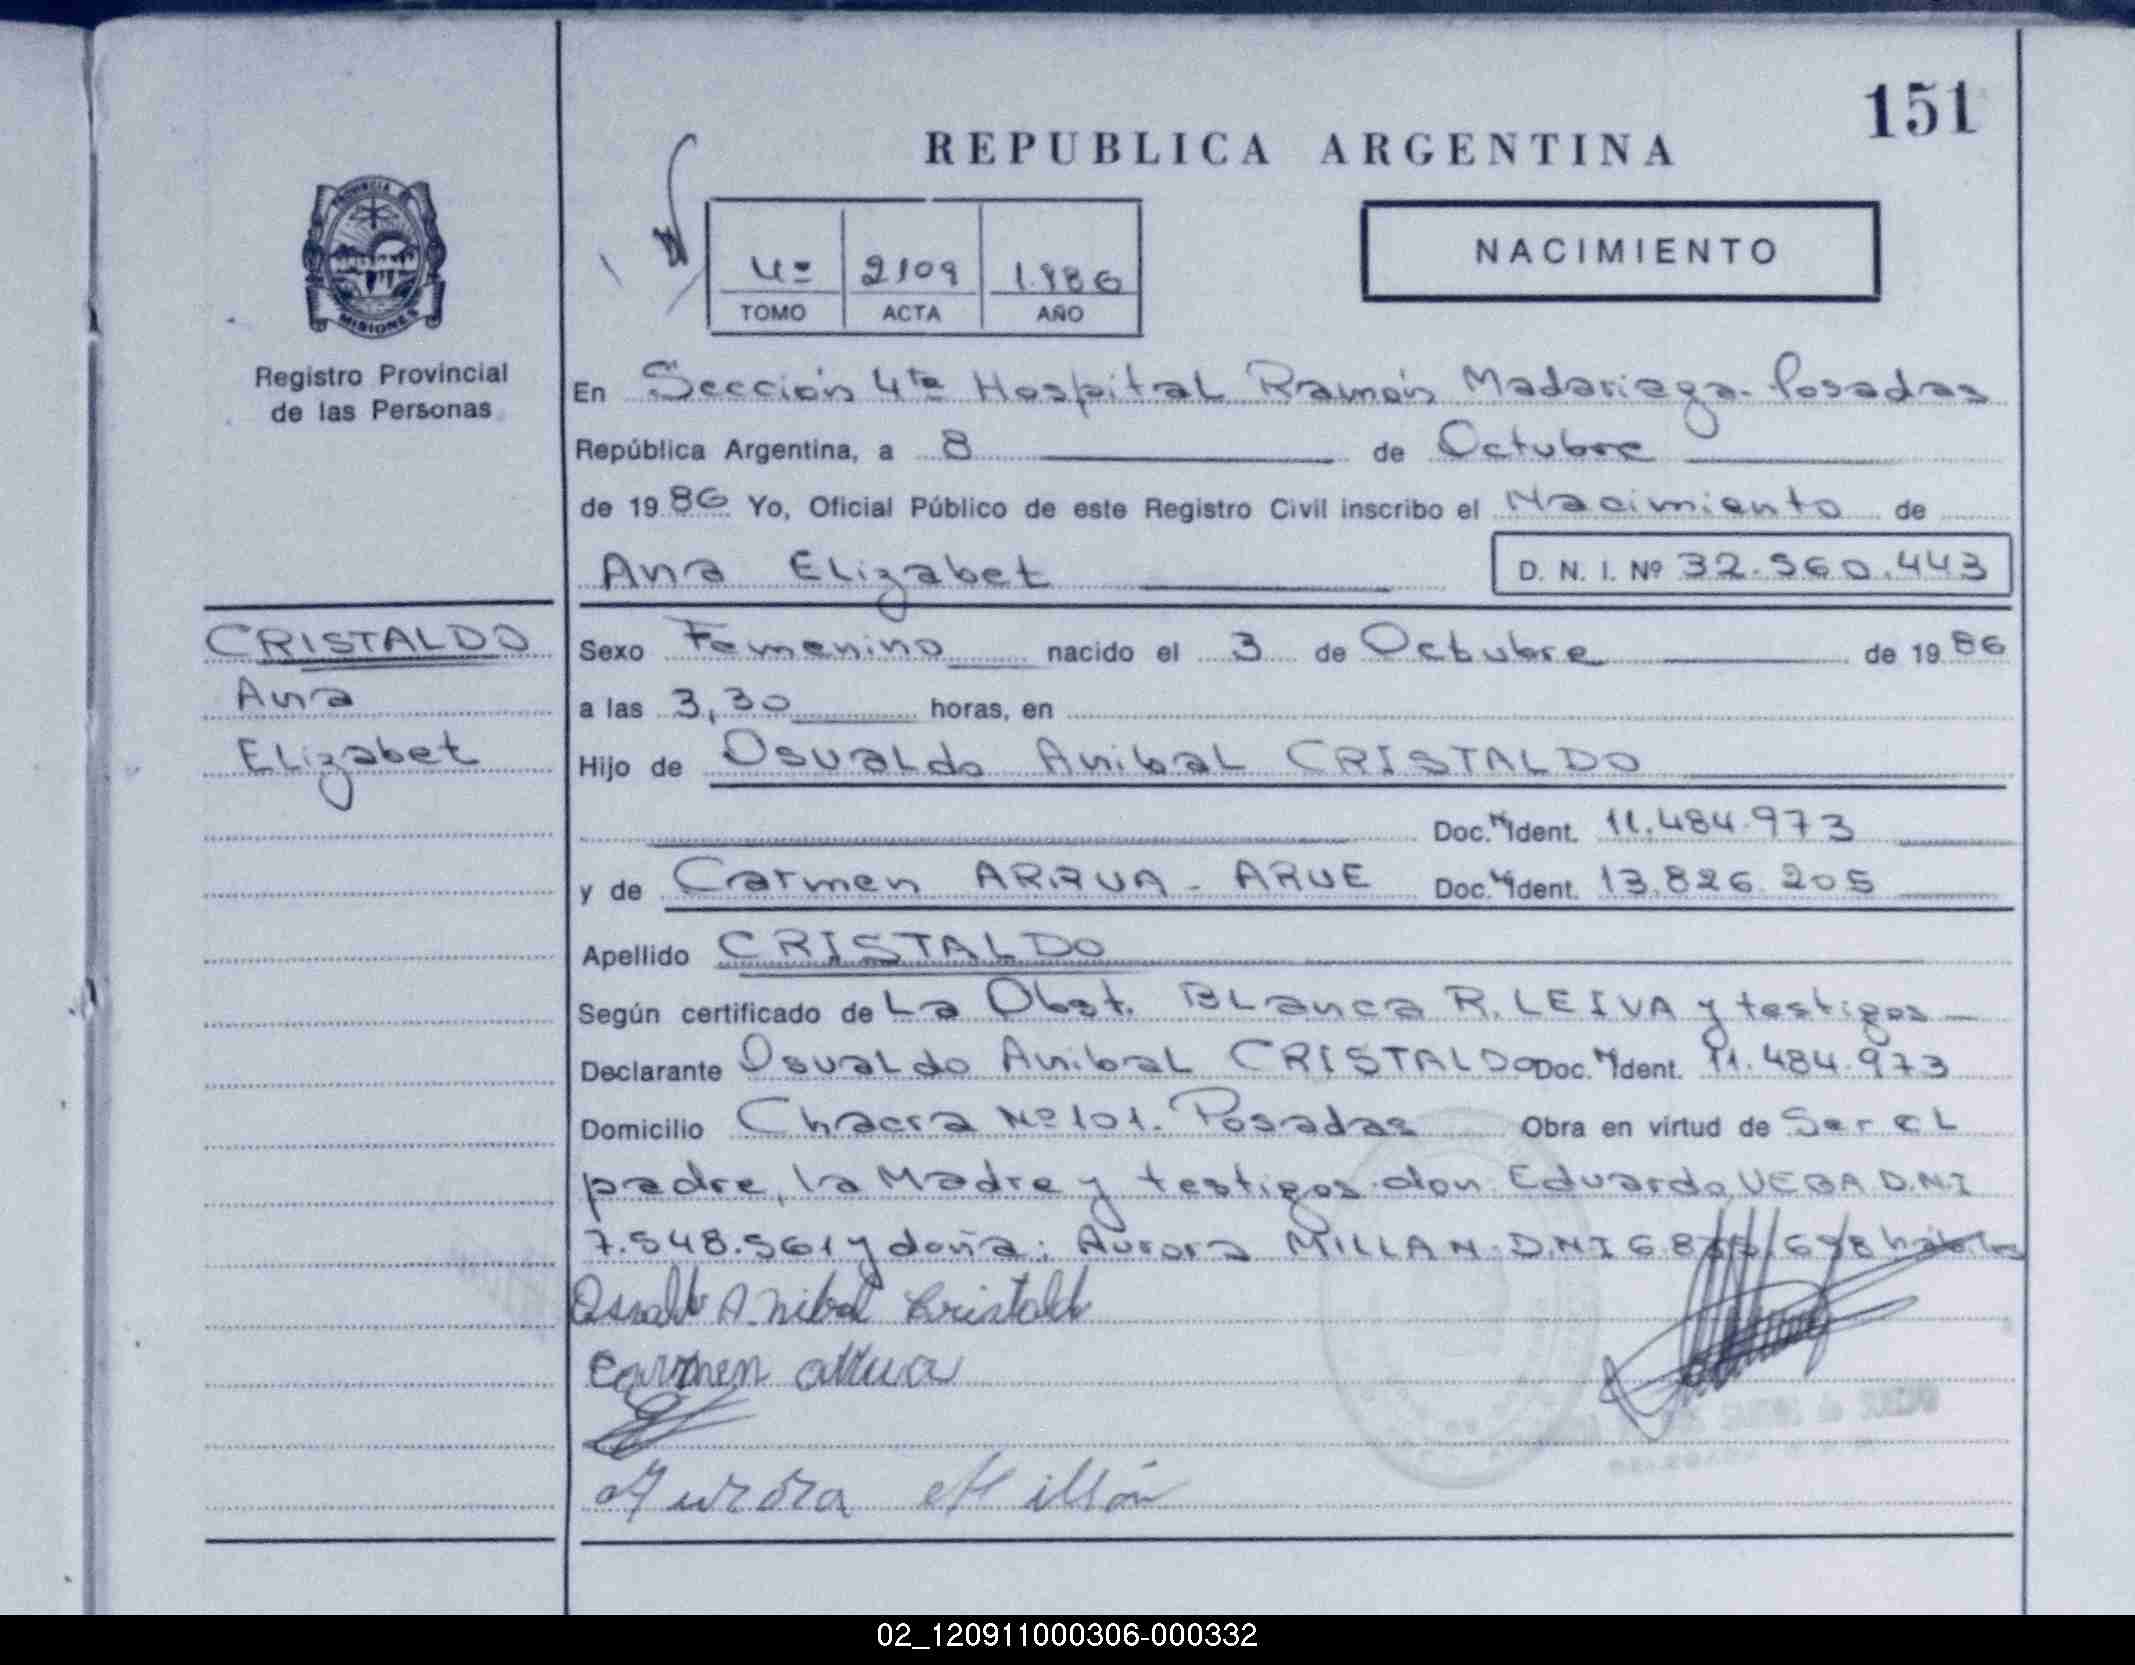 151
REPUBLICA ARGENTINA
PROVINCIA DE
MISIONES
Registro Provincial
de las Personas
NACIMIENTO
4º 2109 1.986
TOMO ACTA AÑO
En Sección 4ta Hospital Ramón Madariaga. Posadas
República Argentina, a 8 de Octubre
de 1986 Yo, Oficial Público de este Registro Civil inscribo el Nacimiento de
Ana Elizabet D. N. I. Nº 32.560.443
CRISTALDO
Ana
Elizabet
Sexo Femenino nacido el 3 de Octubre de 1986
a las 3,30 horas, en
Hijo de Osvaldo Anibal CRISTALDO
Doc. Ident. 11.484.973
y de Carmen ARRUA - ARUE Doc. Ident. 13.826.205
Apellido CRISTALDO
Según certificado de La Obst. Blanca R. LEIVA y testigos
Declarante Osvaldo Anibal CRISTALDO Doc. Ident. 11.484.973
Domicilio Chacra Nº 101. Posadas Obra en virtud de Ser el
padre, la Madre y testigos don Eduardo VEGA D.N.I
7.548.561 y doña: Aurora MILLAN D.N.I 6.8
Osvaldo Anibal Cristaldo
Carmen Arrua
Aurora Millán
02_120911000306-000332